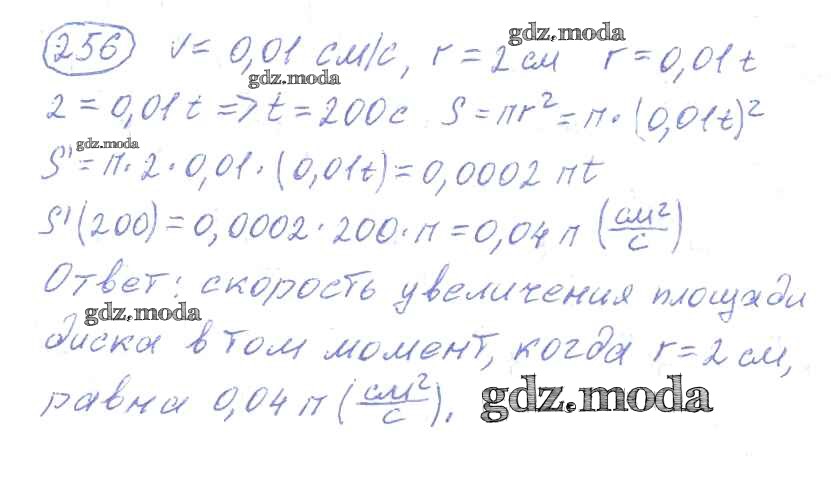 256 v = 0,01 см/с, r = 2 см r = 0,01t
gdz.moda
gdz.moda
2 = 0,01t => t = 200c S = πr² = π · (0,01t)²
gdz.moda
S' = π · 2 · 0,01 · (0,01t) = 0,0002 πt
S'(200) = 0,0002 · 200 · π = 0,04 π (см²/с)
Ответ: скорость увеличения площади
gdz.moda
диска в том момент, когда r = 2 см,
равна 0,04 π (см²/с).
gdz.moda